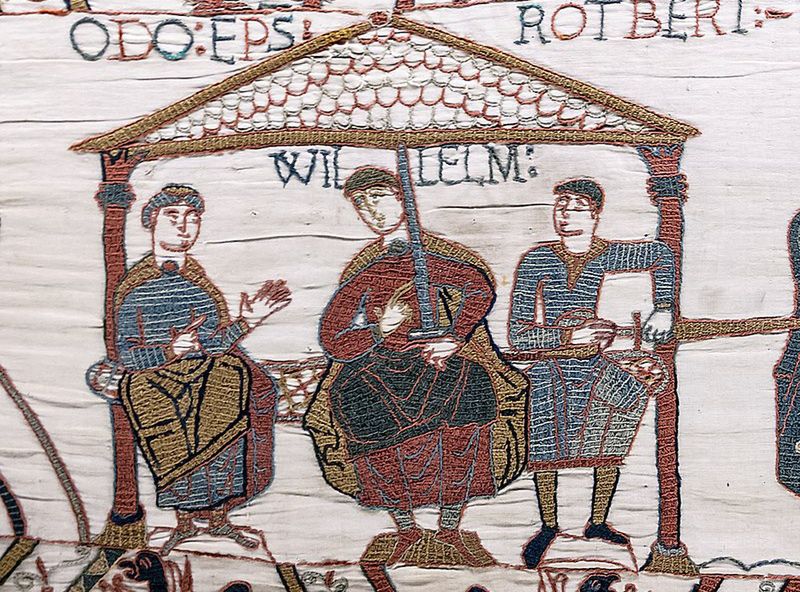 ODO:EPS:
ROTBERT:-
WILLELM: